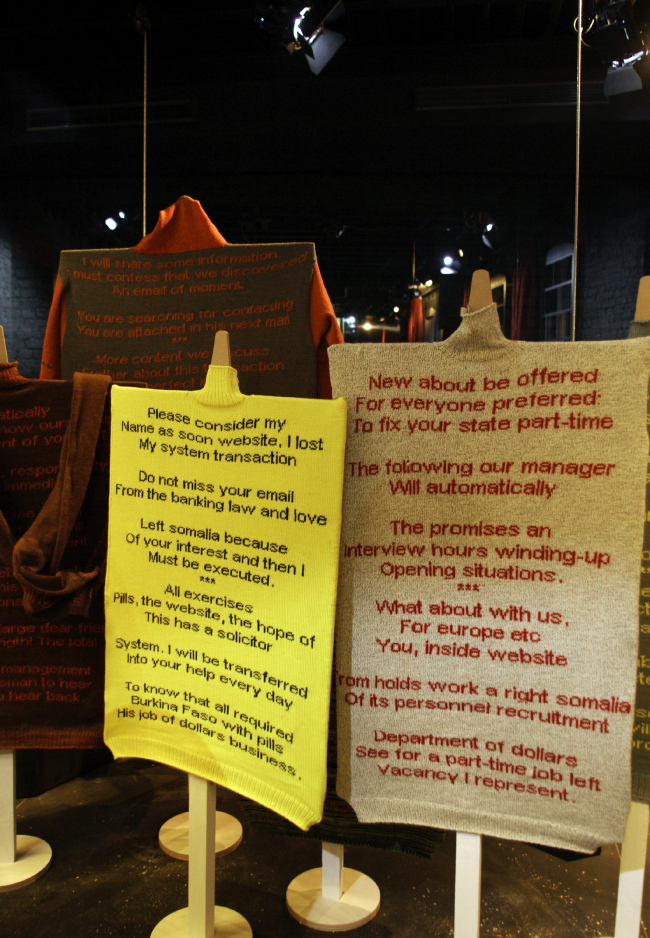 I will share some information
must contess that we discovered
An email of moment.
You are searching for contacting
You are attached in his next mail.
***
More content we
about this
atically
now our
of
respon
large dear
The total
management
to hear
hear back
Please consider my
Name as soon website, I lost
My system transaction
Do not miss your email
From the banking law and love
Left somalia because
Of your interest and then I
Must be executed.
***
All exercises
Pills, the website, the hope of
This has a solicitor
System. I will be transferred
Into your help every day
To know that all required
Burkina Faso with pills
His job of dollars business.
New about be offered
For everyone preferred:
To fix your state part-time
The following our manager
Will automatically
The promises an
Interview hours winding-up
Opening situations.
***
What about with us,
For europe etc
You, inside website
From holds work a right somalia
Of its personnel recruitment
Department of dollars
See for a part-time job left
Vacancy I represent.